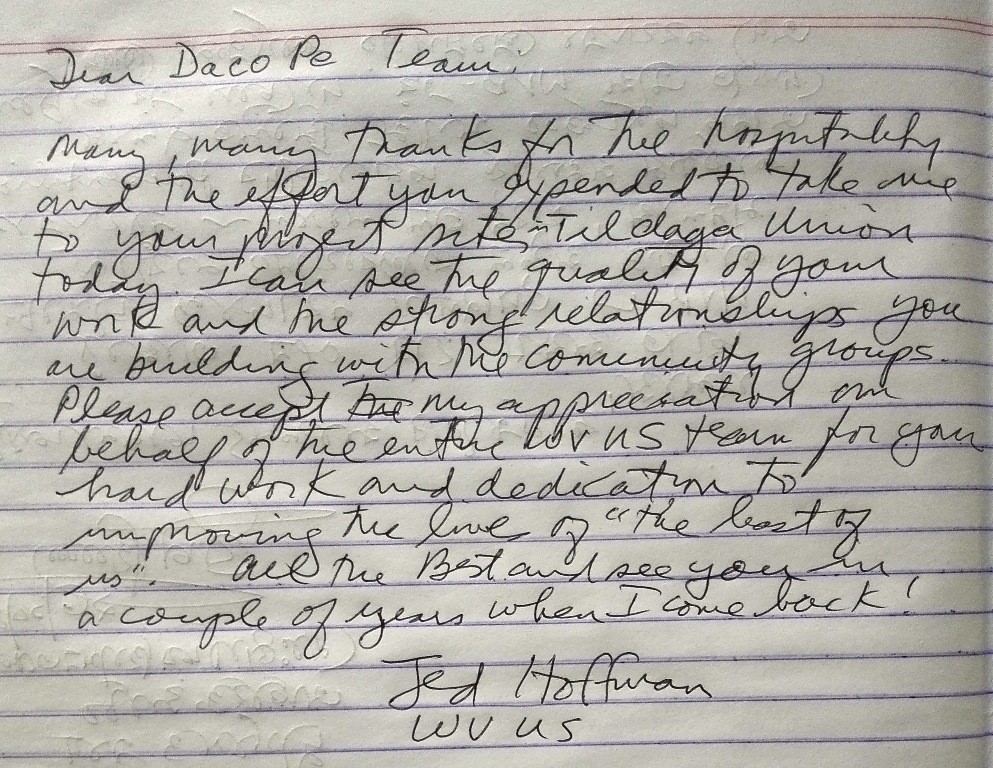 Dear Daco Pe Team,
Many, many thanks for the hospitality
and the effort you expended to take me
to your project site in Tildaga Union
today. I can see the quality of your
work and the strong relationships you
are building with the community groups.
Please accept the my appreciation on
behalf of the entire WV US team for your
hard work and dedication to
improving the lives of "the least of
us". All the Best and see you in
a couple of years when I come back!
Jed Hoffman
WV US